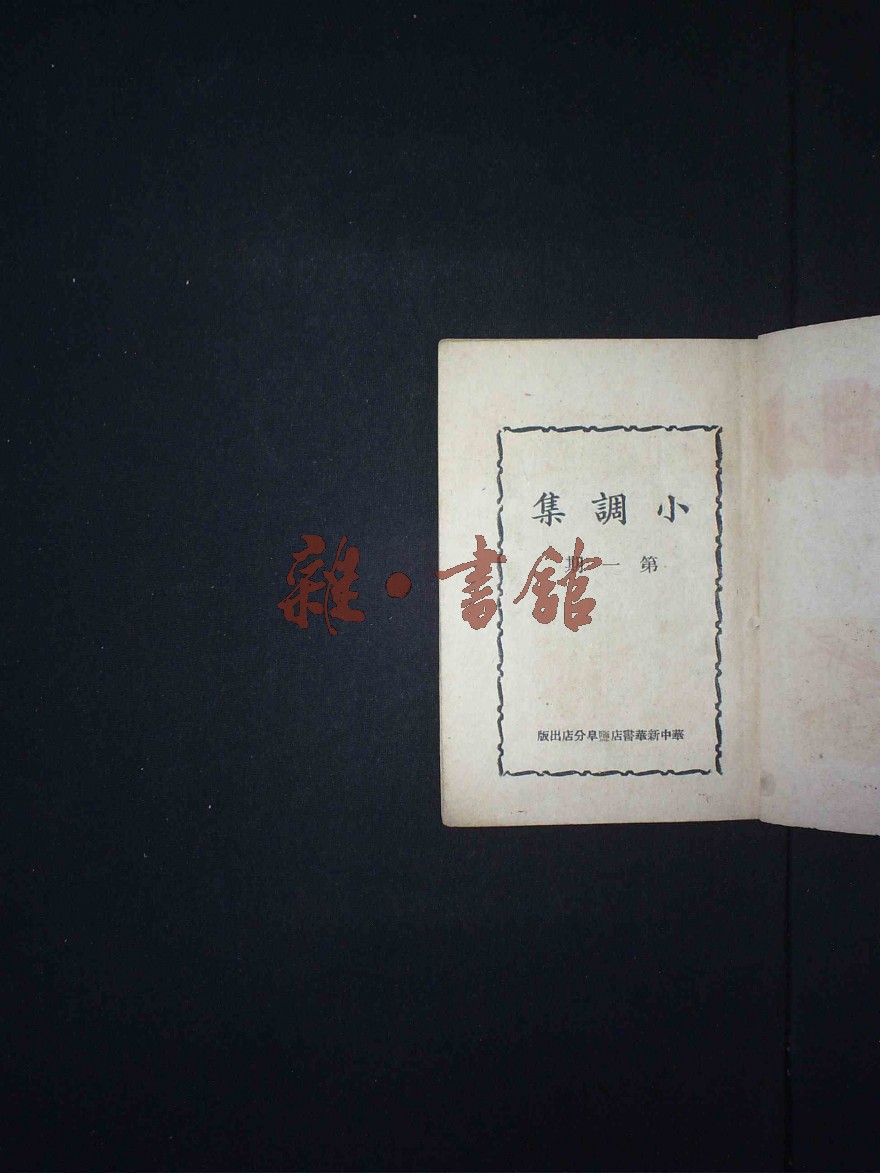 小調集
第一期
雜·書館
華中新華書店鹽阜分店出版